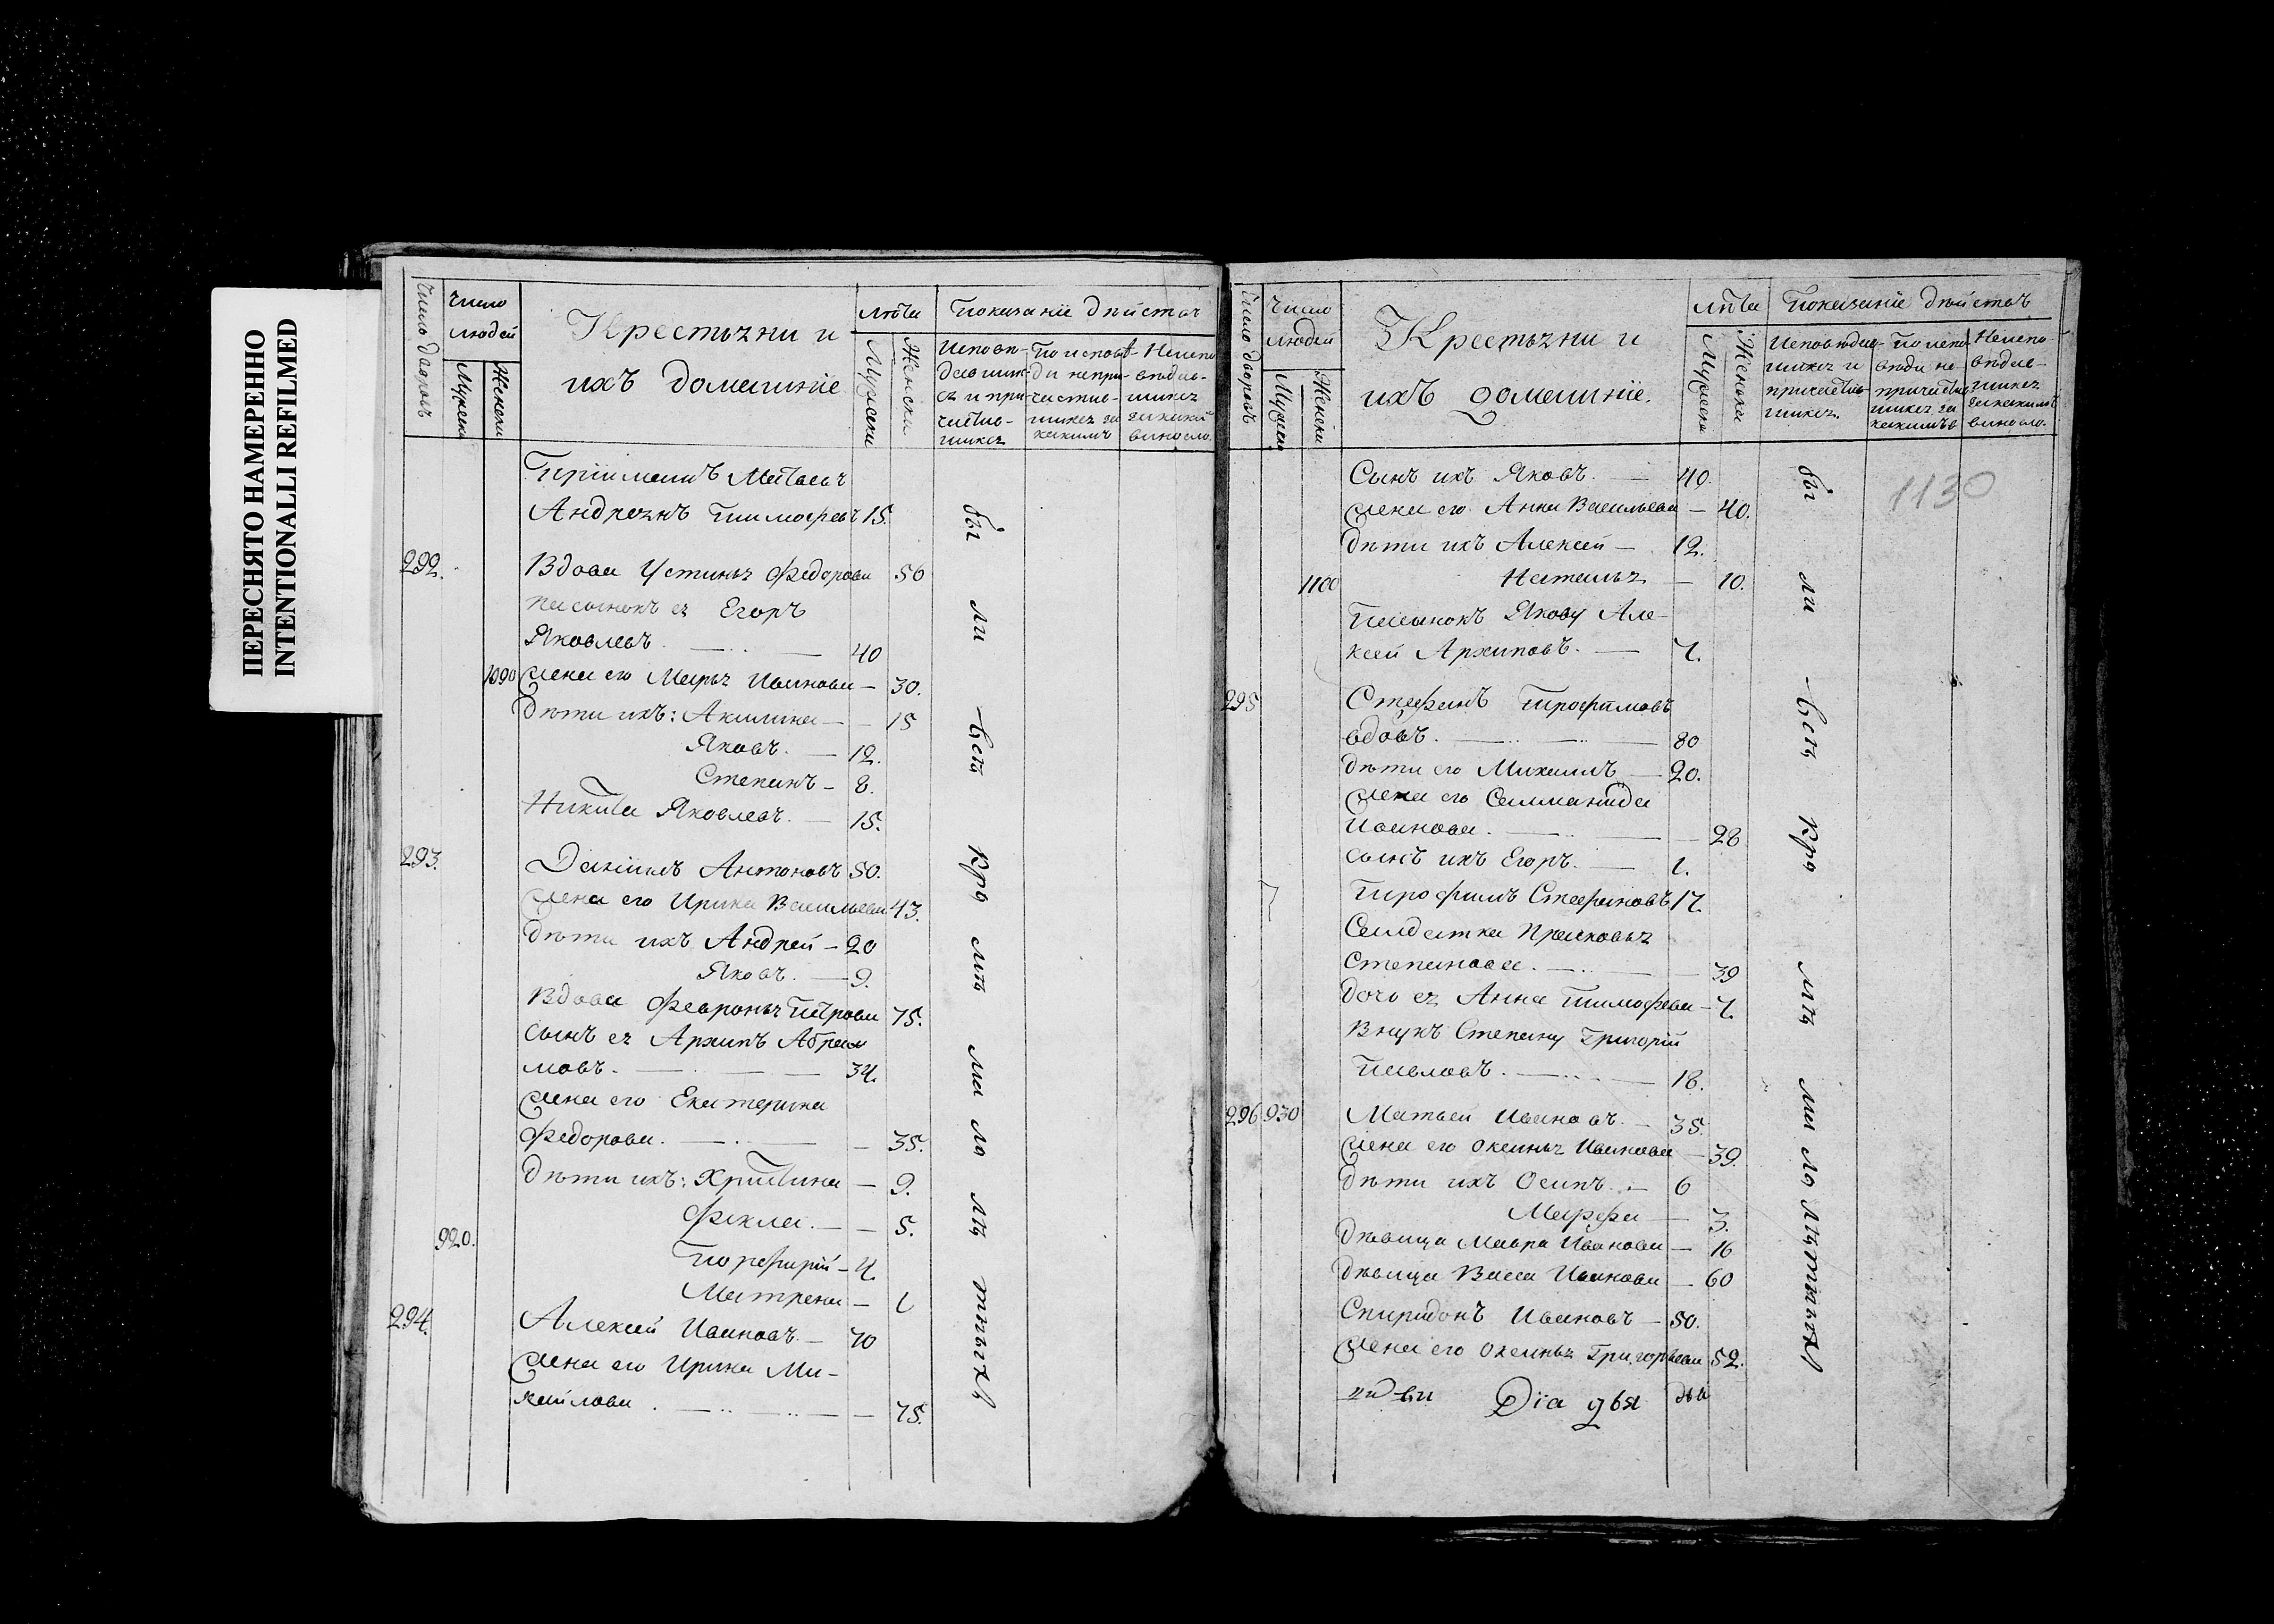 ПЕРЕСНЯТО НАМЕРЕННО
INTENTIONALLI REFILMED
Число дворовъ
Число
людей
Мужеска
Женски
Крестьяни и
ихъ домашніе
лѣта
Мужески
Женски
Показаніе дѣйствъ
Исповѣ-
давших-
ся и при-
частив-
шихся
По испов-
ди непри-
частив-
шихся за
какимъ
Неиспо
вѣдав-
шихся
за какой
виною
Пріимашъ Матвевъ
Андреянъ Тимофеевъ 15.
292. Вдова Устинья Федорова 56
пасынокъ ея Егоръ
Яковлевъ. — 40
1090 жена его Марья Иванова — 30.
Дѣти ихъ: Акилина — 15
Яковъ. — 12.
Степанъ — 8.
Никита Яковлевъ. — 15.
293. Даніилъ Антоновъ 50.
жена его Ирина Васильева 43.
Дѣти ихъ Андрей — 20
Яковъ. — 9.
Вдова Февронья Петрова 75.
сынъ ея Архипъ Абра
мовъ. — 34.
жена его Екатерина
Федорова. — 35.
Дѣти ихъ: Христина — 9.
Фекла. — 5.
920. Порфирій — 4.
Матрена — 1
294. Алексей Ивановъ. — 70
жена его Ирина Ми-
хайлова. — 75.
бы
ли
всѣ
кро
мѣ
ма
ло
лѣ
тныхъ
Число дворовъ
Число
людей
Мужески
Женски
Крестьяни и
ихъ домашніе.
лѣта
Мужески
Женски
Показаніе дѣйствъ
Исповѣдав-
шихся и
причастив-
шихся.
По испо
вѣди не
причастив
шихся за
какимъ
Неиспо
вѣдав-
шихся
за какимъ
виною.
1130
Сынъ ихъ Яковъ. — 40.
жена его Анна Васильева — 40.
Дѣти ихъ Алексей — 12.
1100 Наталья — 10.
Пасынокъ Якову Але-
ксей Архиповъ. — 7.
295 Стефанъ Трофимовъ
вдовъ. — 80
Дѣти его Михаилъ — 20.
жена его Саламанида
Иванова. — 28
сынъ ихъ Егоръ. — 1.
Трофимъ Стефановъ 17.
Салдатка Прасковья
Степанова. — 39
дочь ея Анна Тимофева — 7.
Внукъ Степану Григорій
Павловъ. — 18.
296 930 Матвей Ивановъ. — 35.
жена его Оксинья Иванова — 39.
Дѣти ихъ Осипъ. — 6
Марфа — 3.
Дѣвица Мавра Иванова — 16
Дѣвица Васса Иванова — 60
Спиридонъ Ивановъ — 50.
жена его Оксинья Григорьева 52.
Діа
бы
ли
всѣ
кро
мѣ
ма
ло
лѣ
тныхъ